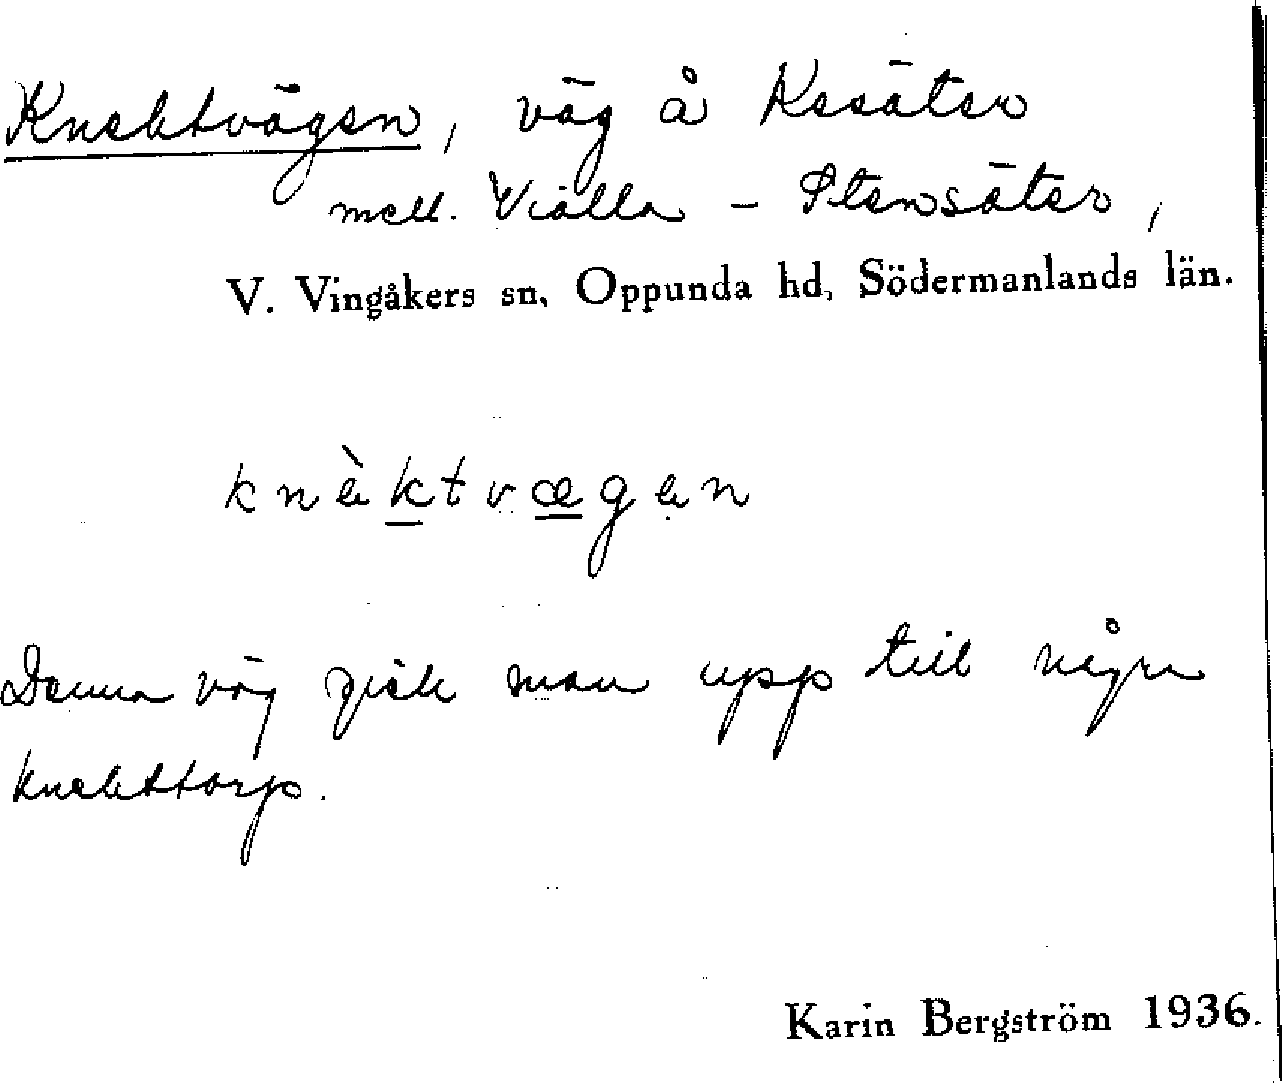 Knektvägen, väg å Kesäter
mell. Viälla - Stensäter,
V. Vingåkers sn, Oppunda hd, Södermanlands län.
knèktvægen
Denna väg gick man upp till några
knekttorp.
Karin Bergström 1936.